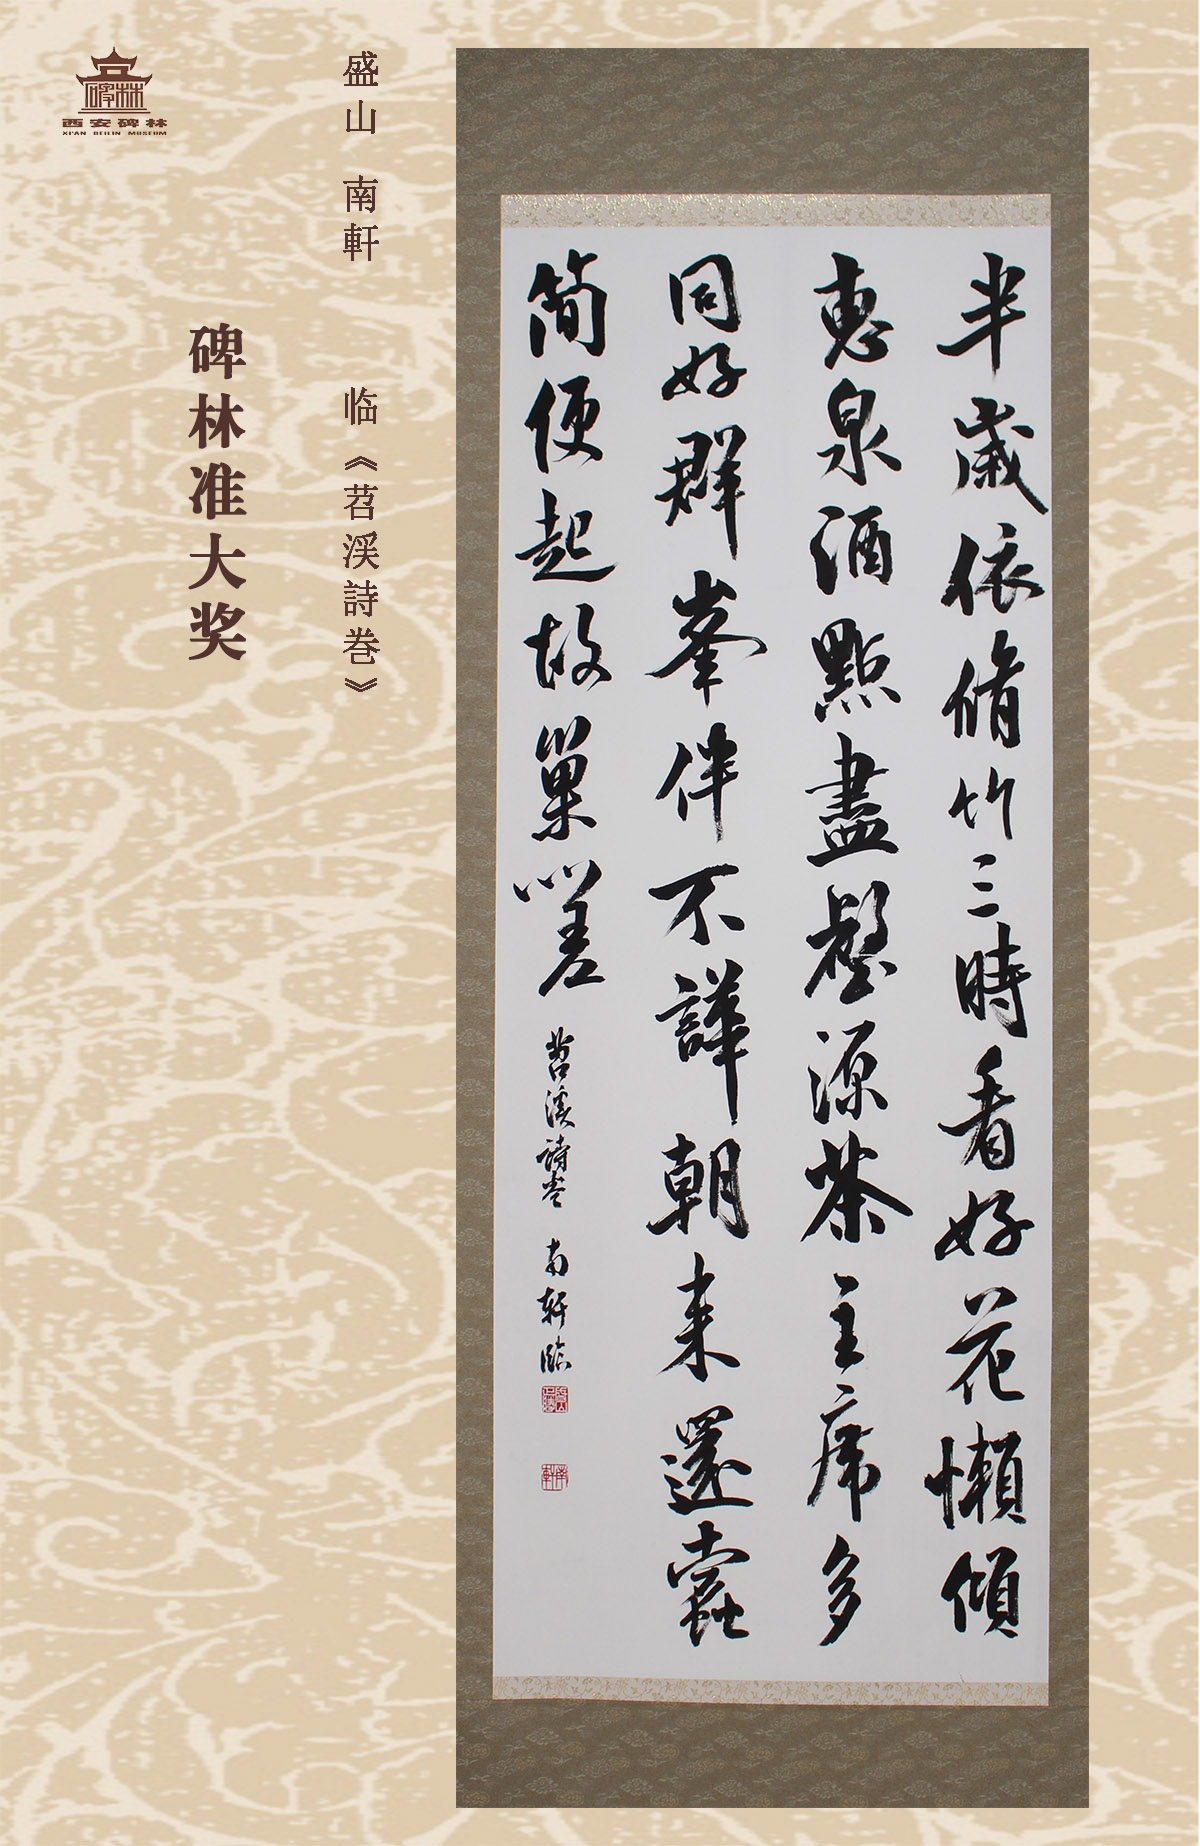 碑林
西安碑林
XI'AN BEILIN MUSEUM
盛山 南軒 临《苕溪詩巻》
碑林准大奖
半歲依脩竹三時看好花懶傾
惠泉酒點盡壑源茶主席多
同好群峯伴不譁朝来還蠹
簡便起故巢嗟
苕溪詩卷 南軒臨
南軒